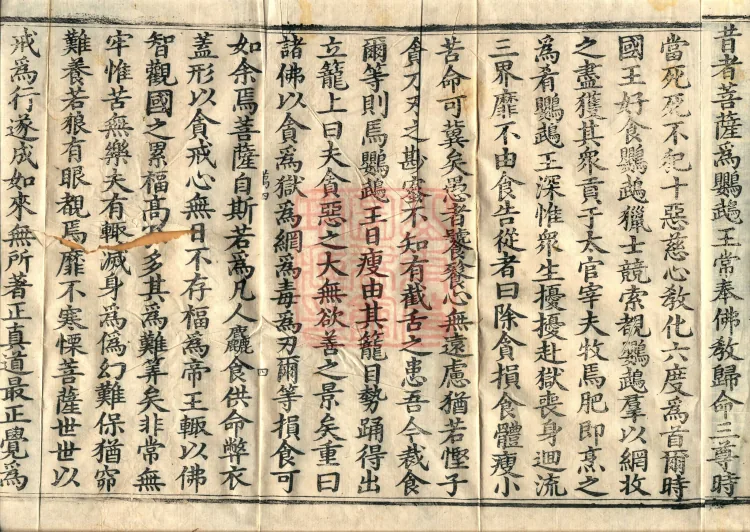 昔者菩薩爲鸚鵡王常奉佛教歸命三尊時
當死死不犯十惡慈心教化六度爲首爾時
國王好食鸚鵡獵士競索覩鸚鵡羣以網收
之盡獲其衆貢于太官宰夫牧焉肥即烹之
爲肴鸚鵡王深惟衆生擾擾赴獄喪身迴流
三界靡不由食告從者曰除貪損食體瘦小
苦命可冀矣愚者饕餮心無遠慮猶若慳子
貪刀刃之尠蜜不知有截舌之患吾今裁食
爾等則焉鸚鵡王日瘦由其籠目勢踊得出
立籠上曰夫貪惡之大無欲善之景矣重曰
諸佛以貪爲獄爲網爲毒爲刃爾等損食可
萬四 四
如余焉菩薩自斯若爲凡人麤食供命弊衣
蓋形以貪戒心無日不存福爲帝王輒以佛
智觀國之累福高多其爲難筭矣非常無
牢惟苦無樂夫有輒滅身爲僞幻難保猶卵
難養若狼有眼覩焉靡不寒慄菩薩世世以
戒爲行遂成如來無所著正真道最正覺爲